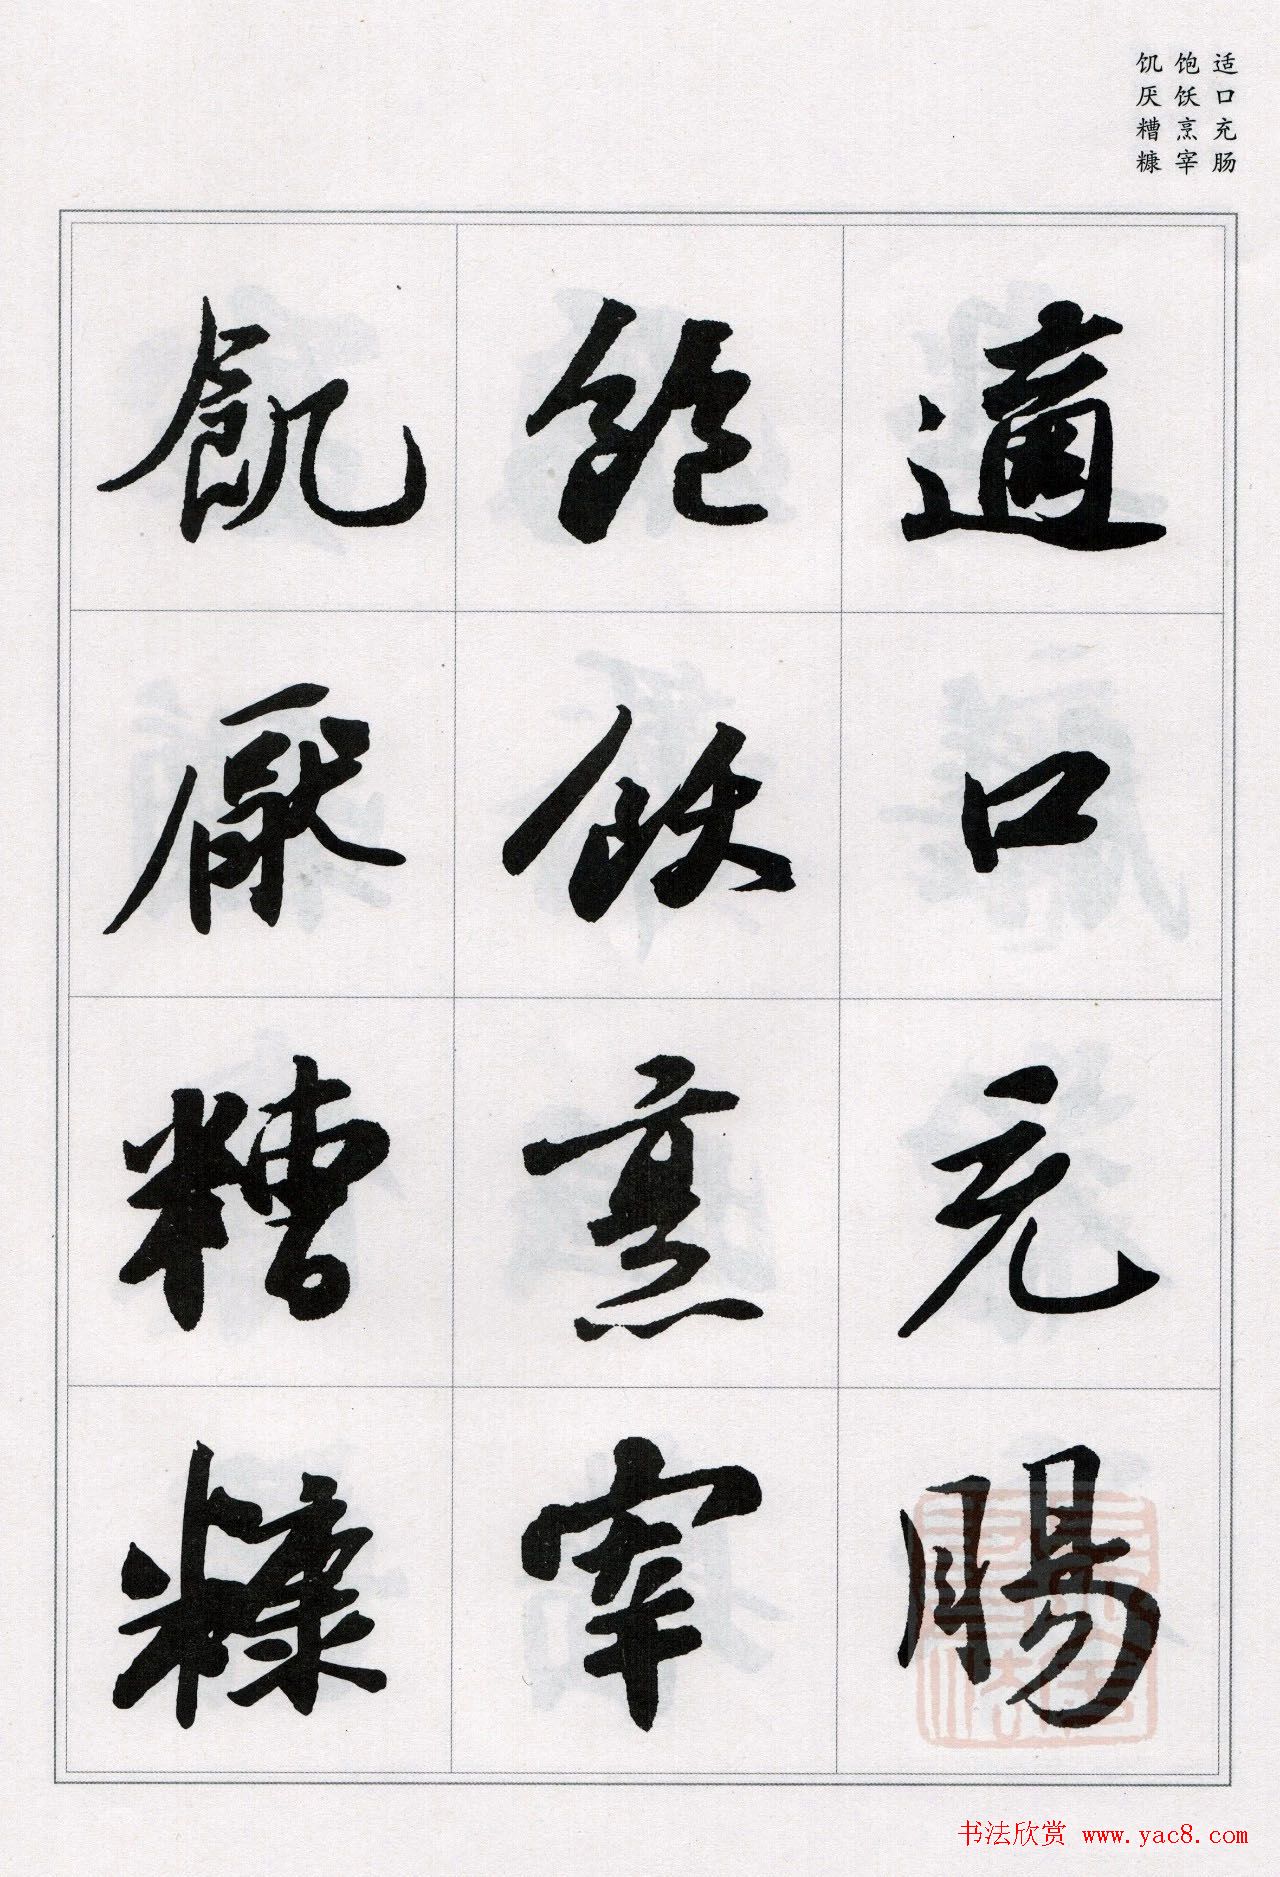 适口充肠
饱饫烹宰
饥厌糟糠
適口充腸
飽飫烹宰
飢厭糟糠
书法欣赏 www.yac8.com